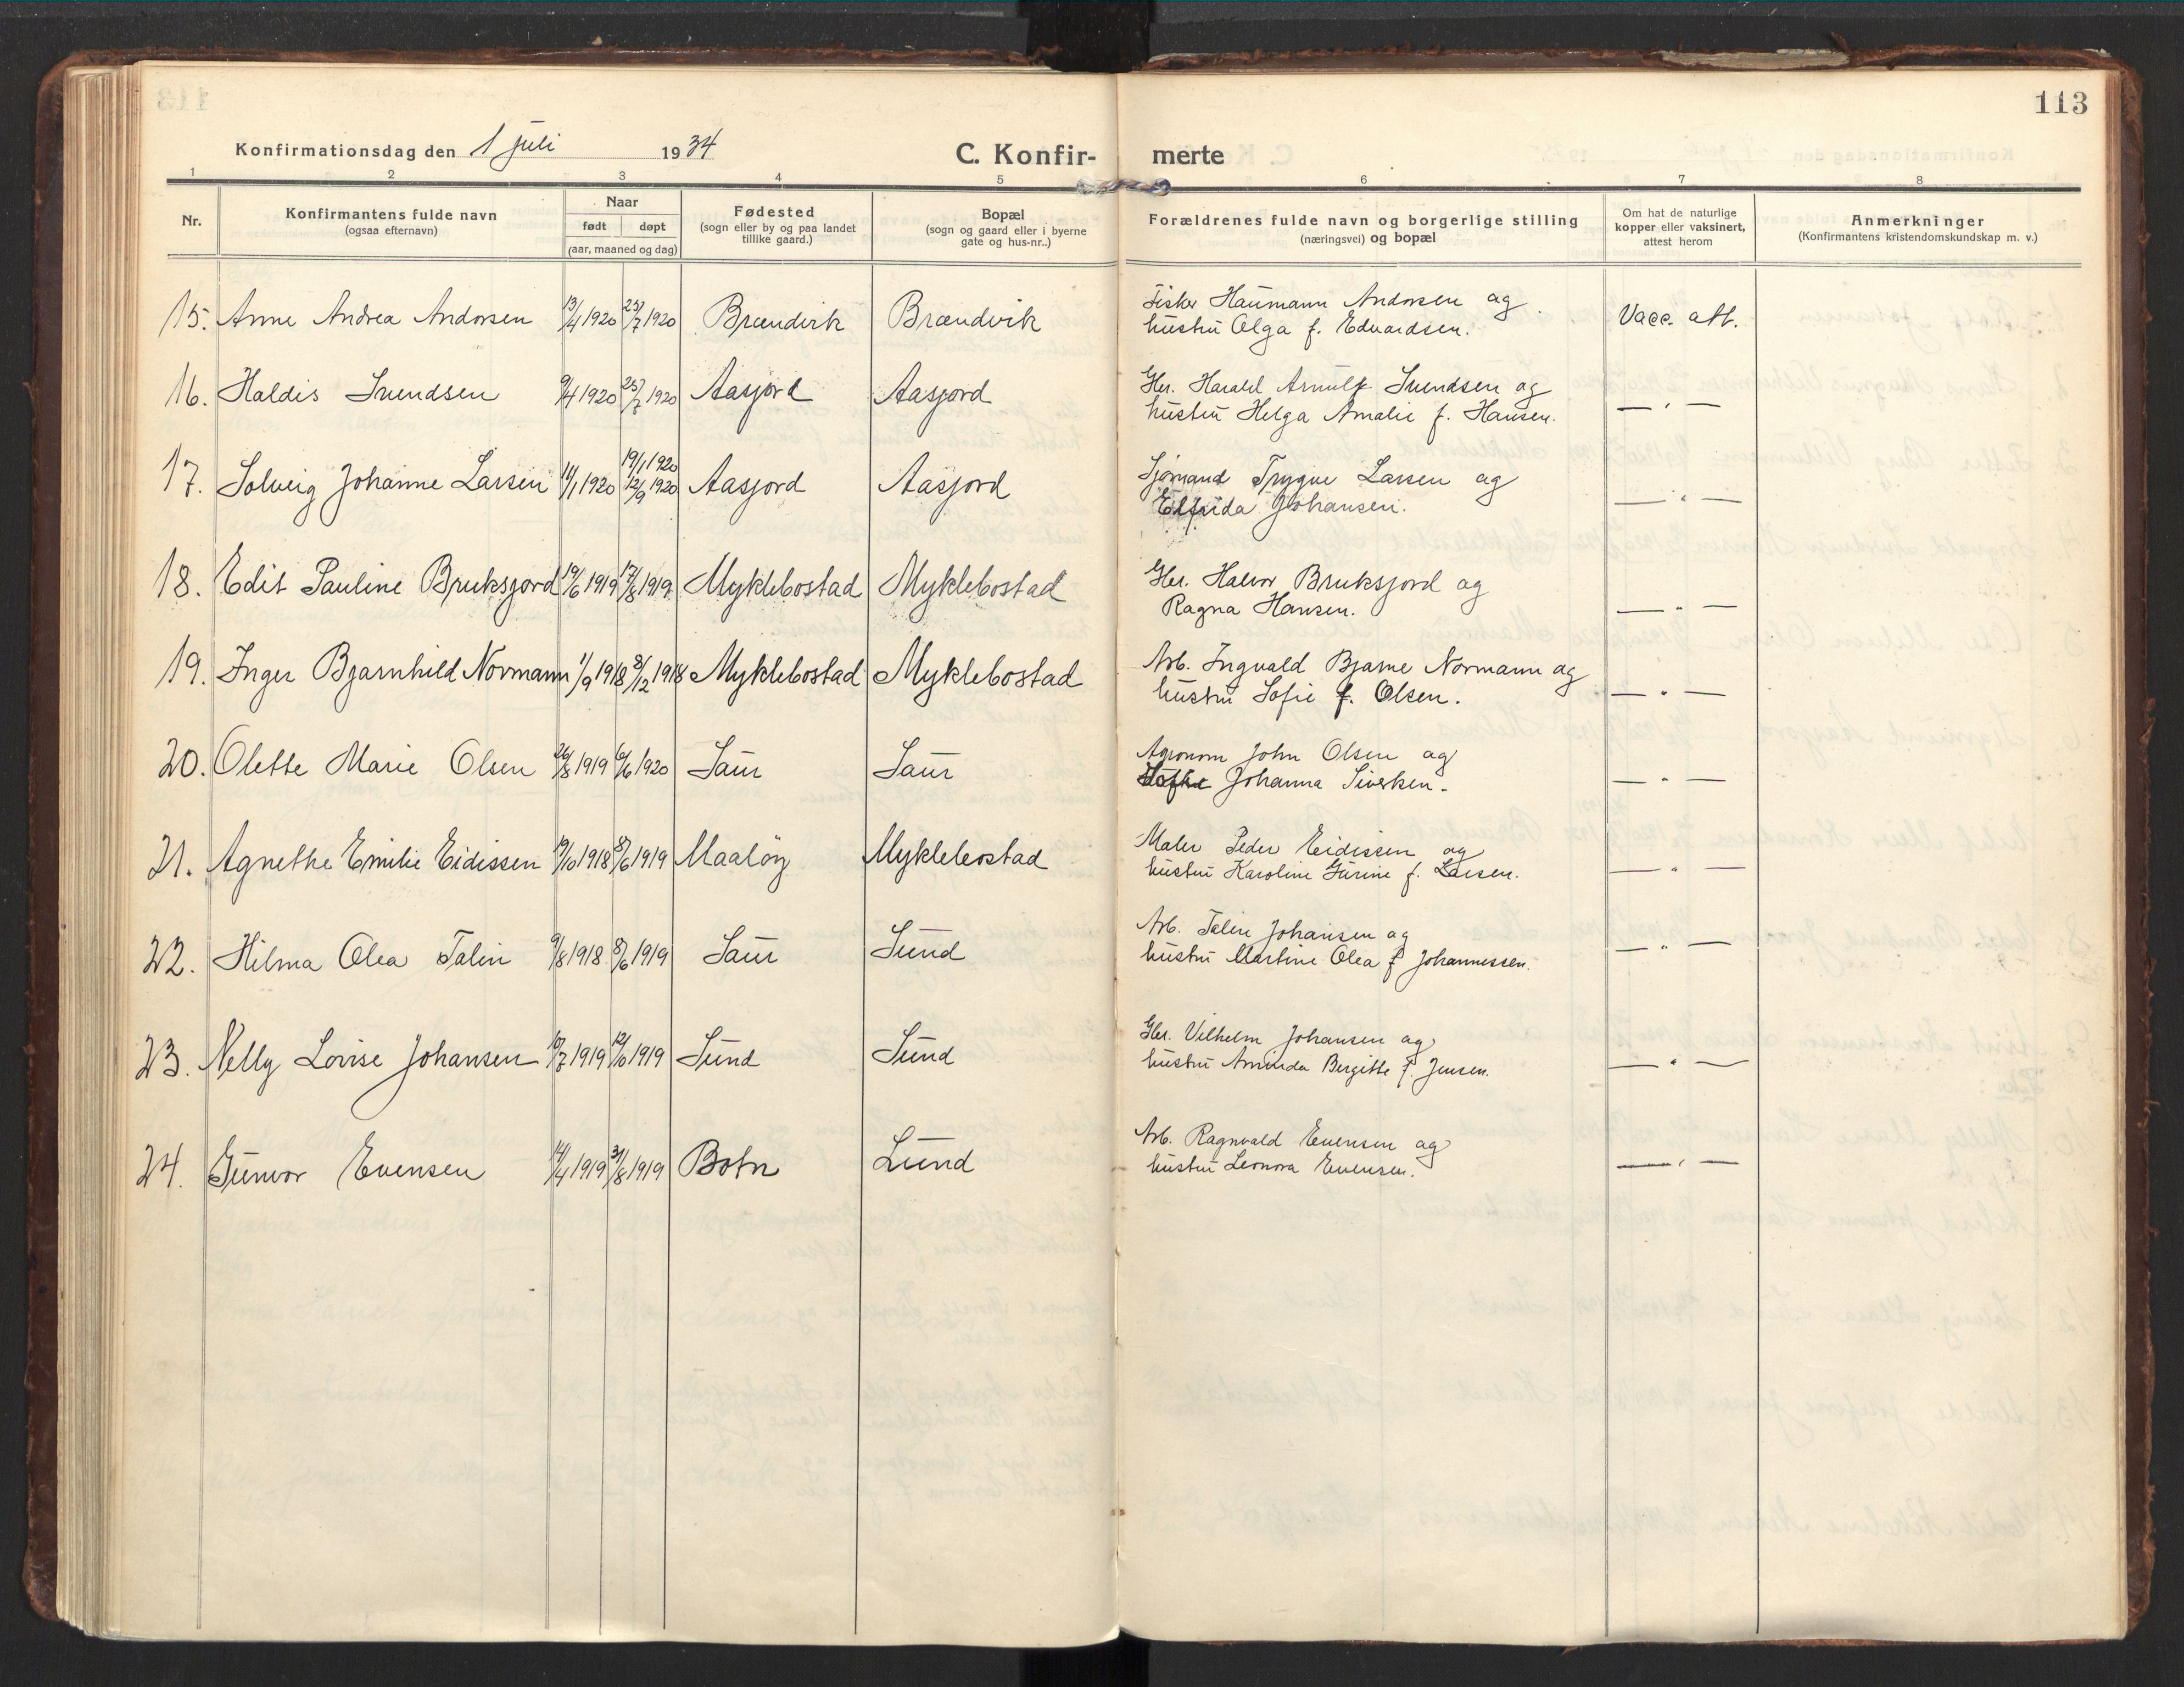 113
Konfirmationsdag den 1 juli 1934
C. Konfirmerte
1 2 3 4 5 6 7 8
Nr.
Konfirmantens fulde navn
(ogsaa efternavn)
Naar
født døpt
(aar, maaned og dag)
Fødested
(sogn eller by og paa landet
tillike gaard.)
Bopæl
(sogn og gaard eller i byerne
gate og hus-nr..)
Forældrenes fulde navn og borgerlige stilling
(næringsvei) og bopæl
Om hat de naturlige
kopper eller vaksinert,
attest herom
Anmerkninger
(Konfirmantens kristendomskundskap m. v.)
15. Anne Andrea Andorsen 13/4 1920 25/7 1920 Brændvik Brændvik Fisker Haumann Andorsen og
hustru Olga f. Edvardsen. Vacc. att.
16. Haldis Svendsen 9/4 1920 25/7 1920 Aasjord Aasjord Gbr. Harald Arnulf Svendsen og
hustru Helga Amalie f. Hansen. — " —
17. Solveig Johanne Larsen 14/1 1920 19/1 1920 12/9 1920 Aasjord Aasjord Sjømand Trygve Larsen og
Elfrida Johansen. — " —
18. Edit Pauline Bruksjord 19/6 1919 17/8 1919 Myklebostad Myklebostad Gbr. Halvor Bruksjord og
Ragna Hansen. — " —
19. Inger Bjarnhild Normann 1/9 1918 8/12 1918 Myklebostad Myklebostad Arb. Ingvald Bjarne Normann og
hustru Sofie f. Olsen. — " —
20. Olette Marie Olsen 26/8 1919 6/6 1920 Saur Saur Agronom John Olsen og
Johanna Siversen. — " —
21. Agnethe Emilie Eidissen 19/10 1918 8/6 1919 Maaløy Myklebostad Maler Peder Eidissen og
hustru Karoline Gurine f. Larsen. — " —
22. Hilma Olea Talin 9/8 1918 8/6 1919 Saur Sund Arb. Talin Johansen og
hustru Martine Olea f Johannessen. — " —
23. Nelly Lovise Johansen 10/7 1919 12/10 1919 Sund Sund Gbr. Vilhelm Johansen og
hustru Aminda Bergitte f. Jensen. — " —
24. Gunvor Evensen 14/4 1919 31/8 1919 Botn Lund Arb. Ragnvald Evensen og
hustru Leonora Evensen. — " —